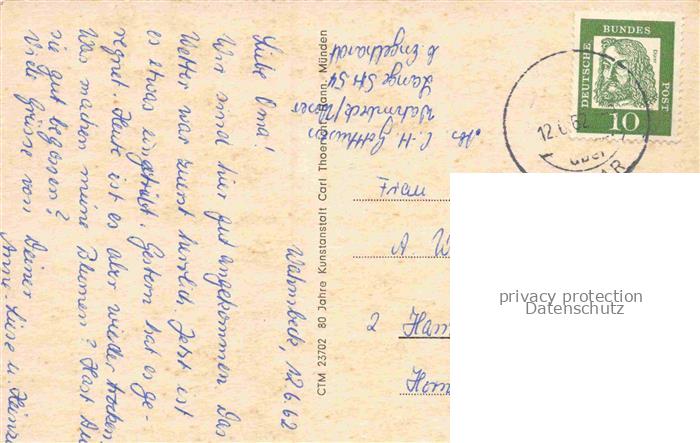 Wahmbeck, 12.6.62
Liebe Oma!
Wir sind hier gut angekommen. Das
Wetter war zuerst herrlich. Jetzt ist
es etwas eingetrübt. Gestern hat es ge-
regnet. Heute ist es aber wieder trocken.
Was machen meine Blumen? Hast Du
sie gut begossen?
Viele Grüsse von Deiner
Anne-Luise u. Heinz
CTM 23702 80 Jahre Kunstanstalt Carl Thoericht, Hann. Münden
Abs. C.-H.
Wahmbeck/Weser
Lange Str. 54
b. Engelhardt
Frau
A. W
2 Ham
Horn
DEUTSCHE
BUNDES
POST
Dürer
10
12.6.62
über
privacy protection
Datenschutz